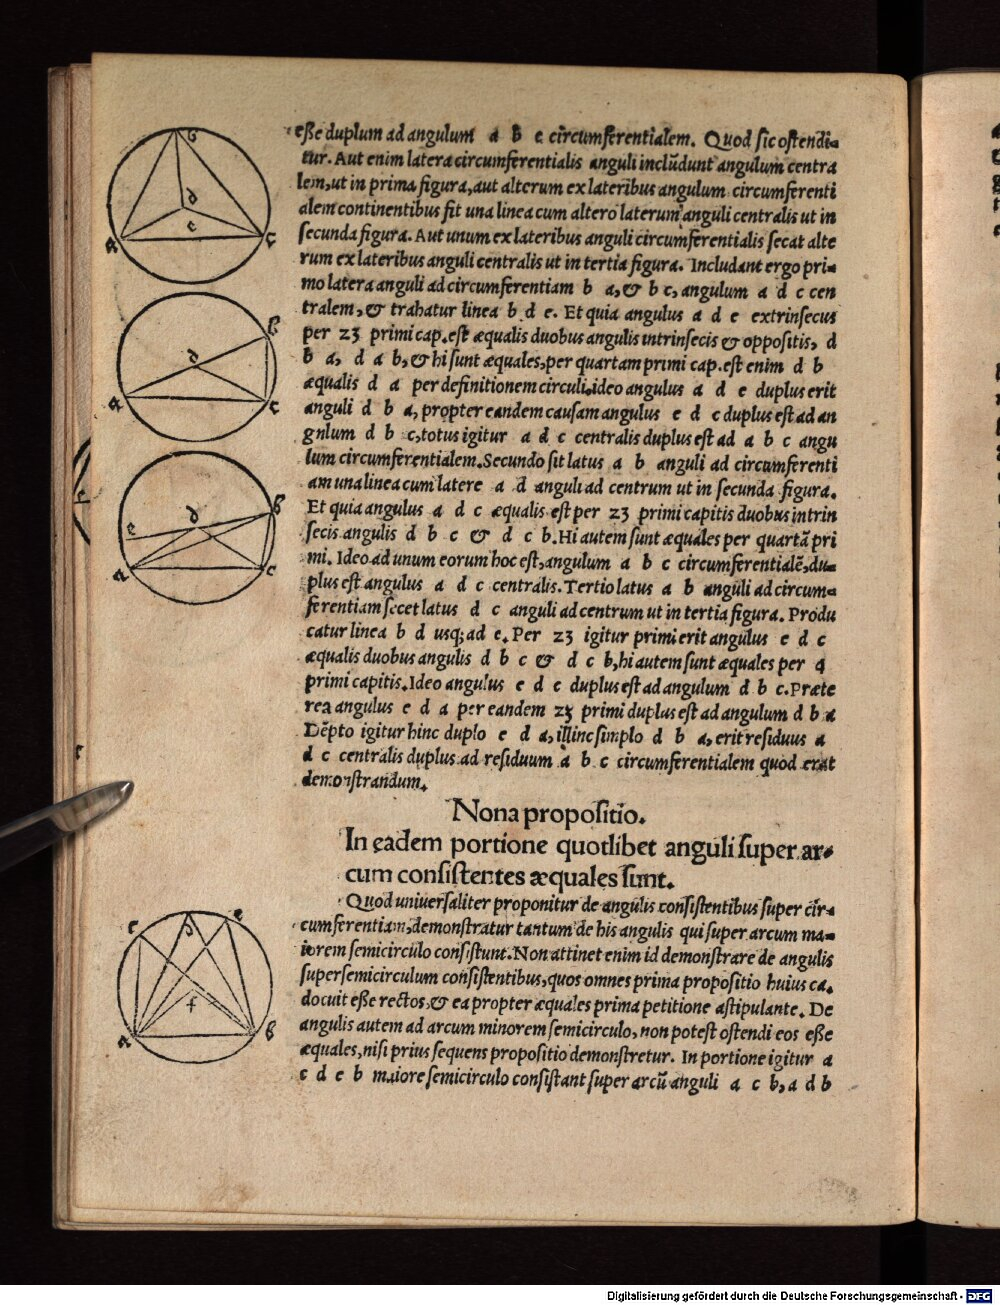 eſſe duplum ad angulum a b c circumferentialem. Quod ſic oſtendi-
tur. Aut enim latera circumferentialis anguli includunt angulum centra
lem, ut in prima figura, aut alterum ex lateribus angulum circumferenti
alem continentibus fit una linea cum altero laterum anguli centralis ut in
ſecunda figura. Aut unum ex lateribus anguli circumferentialis ſecat alte
rum ex lateribus anguli centralis ut in tertia figura. Includant ergo pri-
mo latera anguli ad circumferentiam b a, & b c, angulum a d c cen
tralem, & trahatur linea b d e. Et quia angulus a d e extrinſecus
per 23 primi cap. eſt æqualis duobus angulis intrinſecis & oppoſitis, d
b a, d a b, & hi ſunt æquales, per quartam primi cap. eſt enim d b
æqualis d a per definitionem circuli, ideo angulus a d e duplus erit
anguli d b a, propter eandem cauſam angulus e d c duplus eſt ad an
gulum d b c, totus igitur a d c centralis duplus eſt ad a b c angu
lum circumferentialem. Secundo ſit latus a b anguli ad circumferenti
am una linea cum latere a d anguli ad centrum ut in ſecunda figura.
Et quia angulus a d c æqualis eſt per 23 primi capitis duobus intrin
ſecis angulis d b c & d c b. Hi autem ſunt æquales per quartā pri
mi. Ideo ad unum eorum hoc eſt, angulum a b c circumferentialē, du-
plus eſt angulus a d c centralis. Tertio latus a b anguli ad circum-
ferentiam ſecet latus d c anguli ad centrum ut in tertia figura. Produ
catur linea b d uſq; ad e. Per 23 igitur primi erit angulus e d c
æqualis duobus angulis d b c & d c b, hi autem ſunt æquales per 4
primi capitis. Ideo angulus e d c duplus eſt ad angulum d b c. Præte
rea angulus e d a per eandem 23 primi duplus eſt ad angulum d b a
Dēpto igitur hinc duplo e d a, illinc ſimplo d b a, erit reſiduus a
d c centralis duplus ad reſiduum a b c circumferentialem quod erat
demonſtrandum.
Nona propoſitio.
In eadem portione quotlibet anguli ſuper ar-
cum conſiſtentes æquales ſunt.
Quod univerſaliter proponitur de angulis conſiſtentibus ſuper cir-
cumferentiam, demonſtratur tantum de his angulis qui ſuper arcum ma-
iorem ſemicirculo conſiſtunt. Non attinet enim id demonſtrare de angulis
ſuper ſemicirculum conſiſtentibus, quos omnes prima propoſitio huius ca.
docuit eſſe rectos, & ea propter æquales prima petitione aſtipulante. De
angulis autem ad arcum minorem ſemicirculo, non poteſt oſtendi eos eſſe
æquales, niſi prius ſequens propoſitio demonſtretur. In portione igitur a
c d e b maiore ſemicirculo conſiſtant ſuper arcū anguli a c b, a d b
b
d
e
a
c
b
d
a
c
b
e
d
a
c
c
d
e
f
a
b
Digitalisierung gefördert durch die Deutsche Forschungsgemeinschaft - DFG